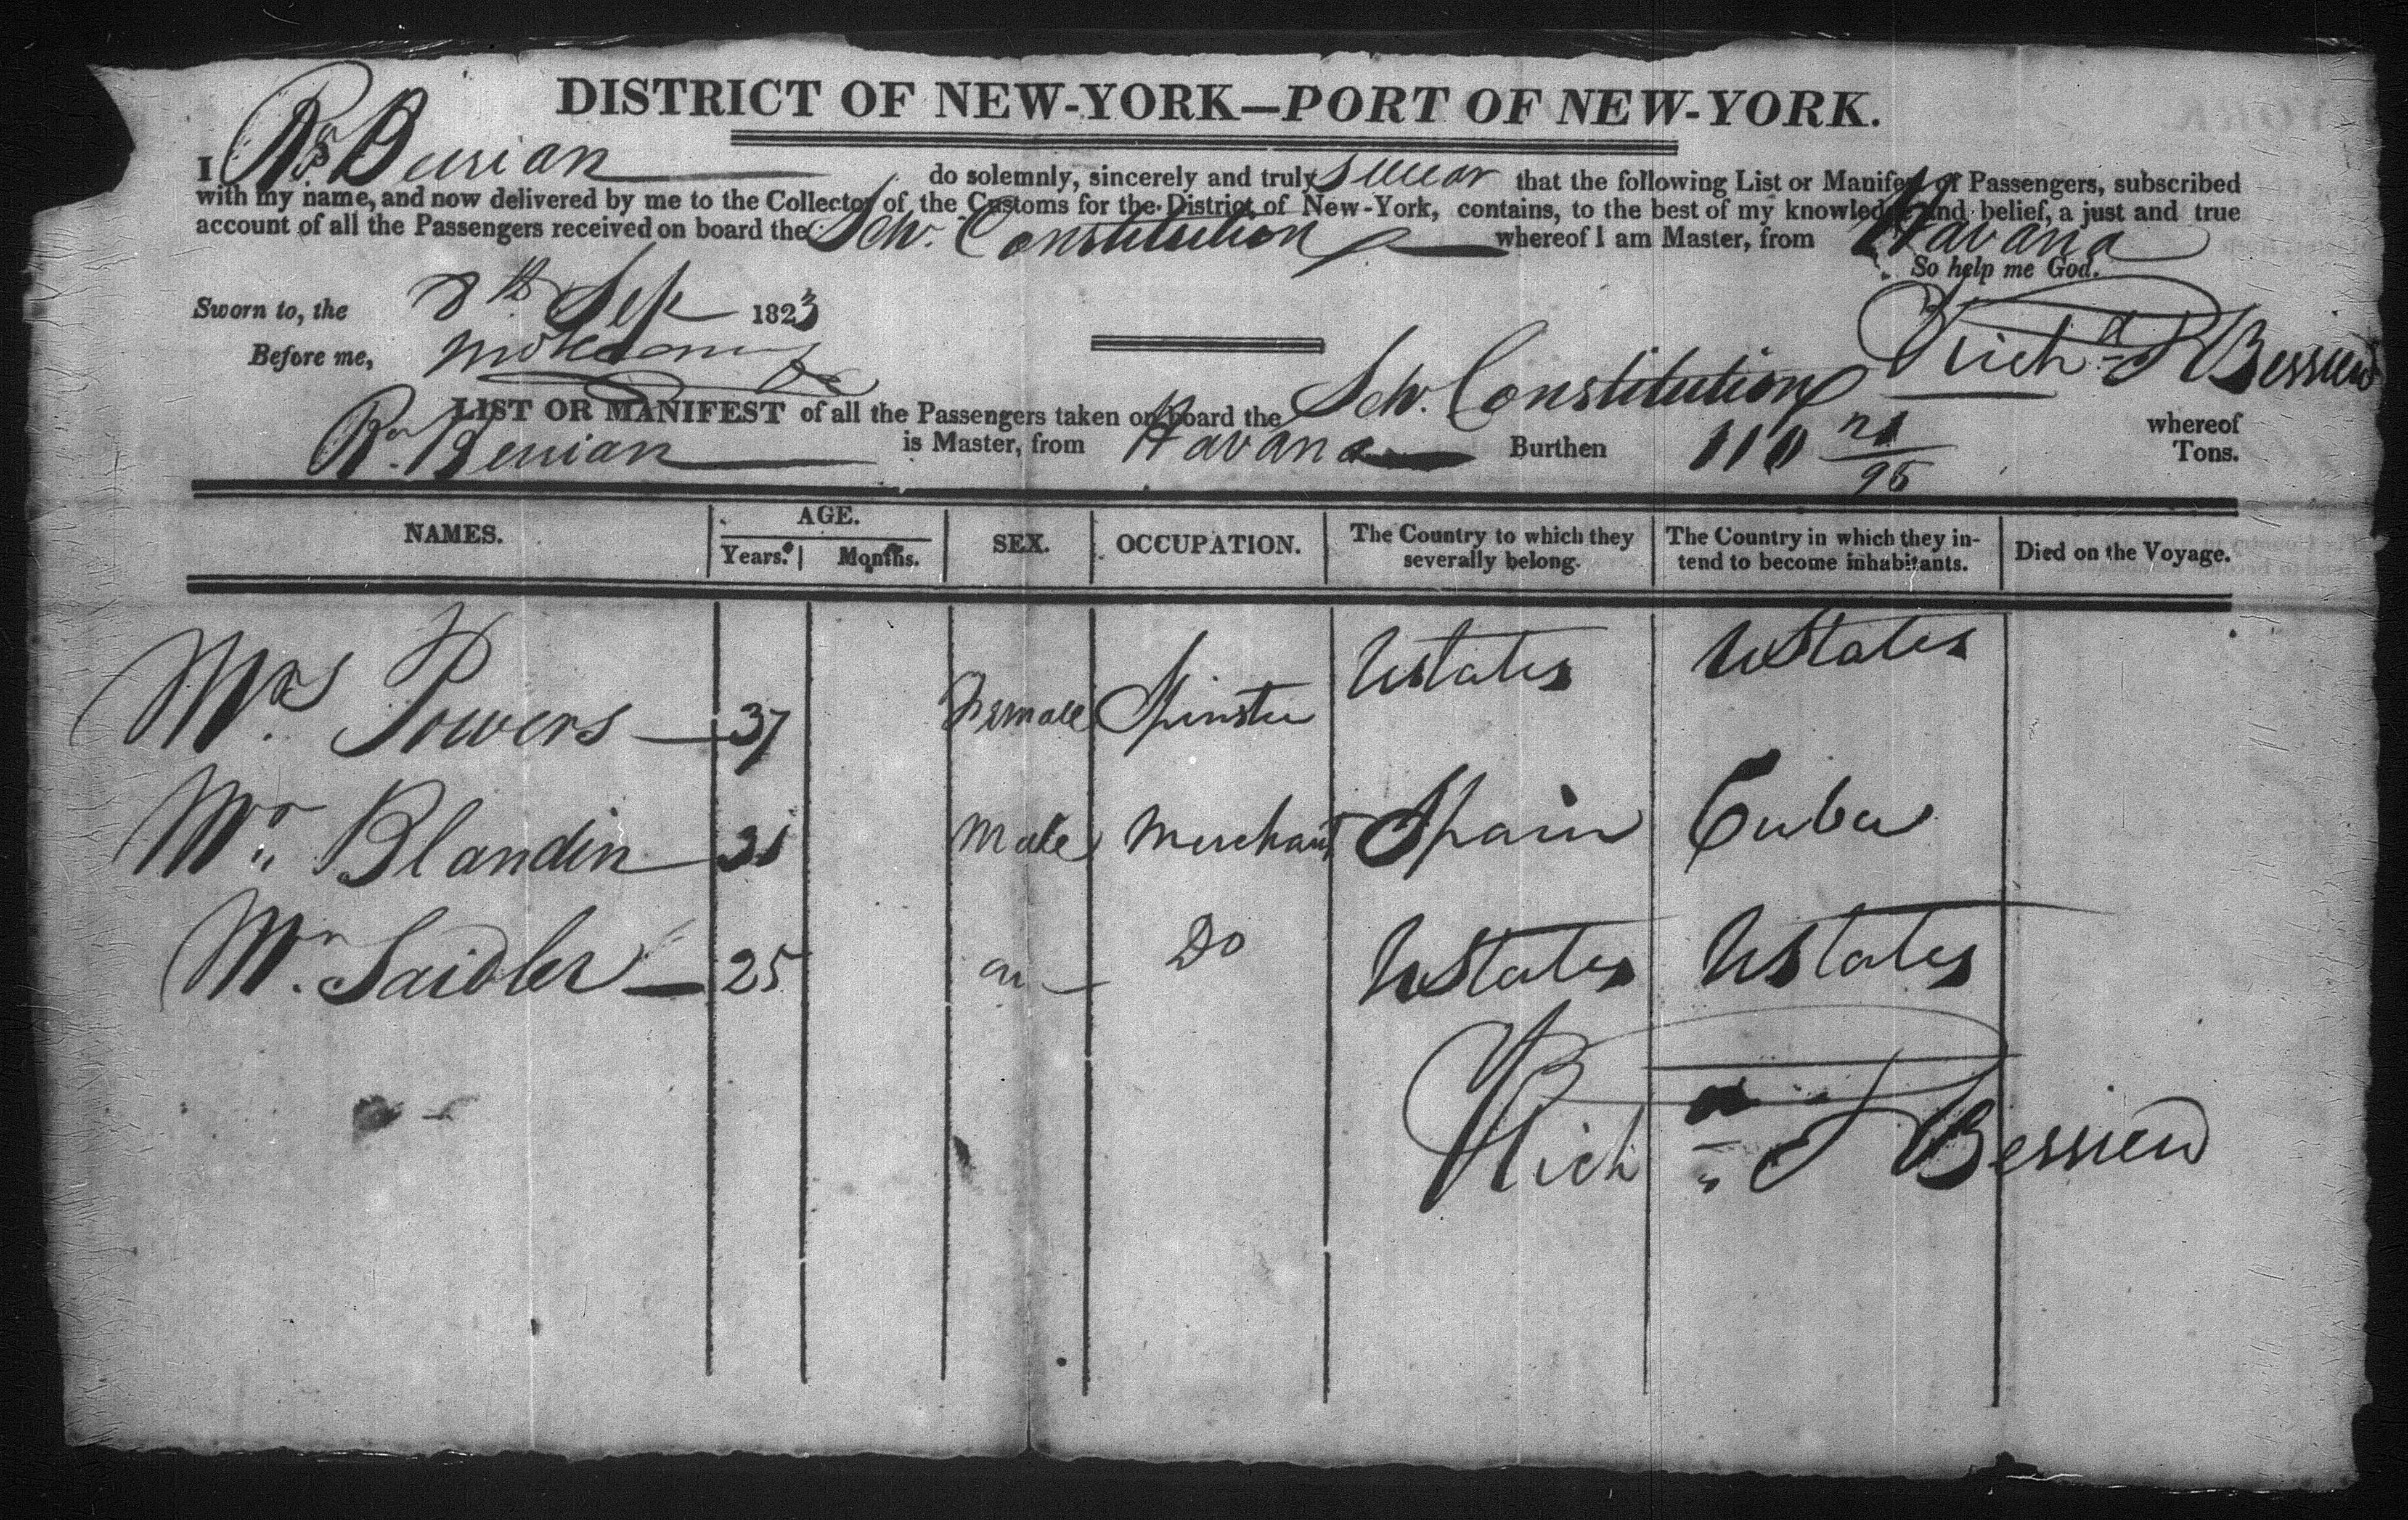 DISTRICT OF NEW-YORK—PORT OF NEW-YORK.
I do solemnly, sincerely and truly swear that the following List or Manifest of Passengers, subscribed
with my name, and now delivered by me to the Collector of the Customs for the District of New-York, contains, to the best of my knowledge and belief, a just and true
account of all the Passengers received on board the Schr. Constitution whereof I am Master, from Havana
So help me God.
Sworn to, the 8th Sep 1823
Before me,
Richd
LIST OR MANIFEST of all the Passengers taken on board the Schr. Constitution whereof
is Master, from Havana Burthen 110 Tons.
NAMES. AGE. SEX. OCCUPATION. The Country to which they severally belong. The Country in which they intend to become inhabitants. Died on the Voyage.
Years. Months.
Mrs. Powers 37 Female Spinster UStates UStates
Mr. Blandin Male Merchant Spain Cuba
Mr. Saidler 25 Do UStates UStates
Richd